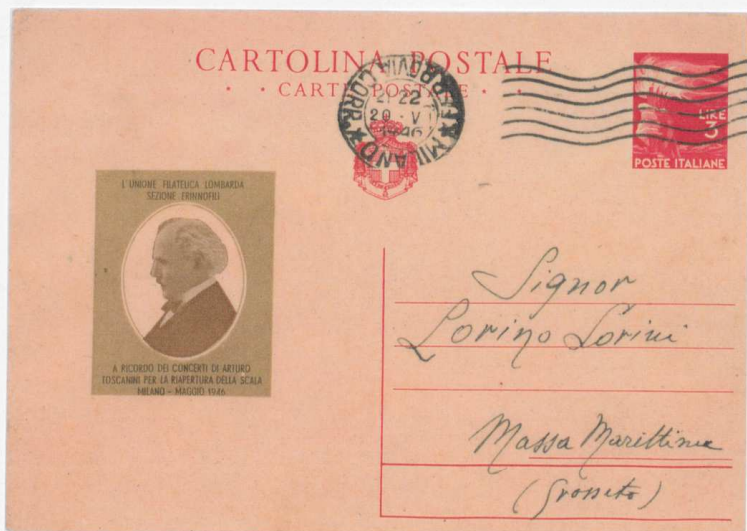 CARTOLINA POSTALE
CARTE POSTALE
MILANO
FERROVIA CORR.
21-22
20-V
1946
LIRE
3
POSTE ITALIANE
L'UNIONE FILATELICA LOMBARDA
SEZIONE ERINNOFILI
A RICORDO DEI CONCERTI DI ARTURO
TOSCANINI PER LA RIAPERTURA DELLA SCALA
MILANO - MAGGIO 1946
Signor
Lorino Lorini
Massa Marittima
(Grosseto)